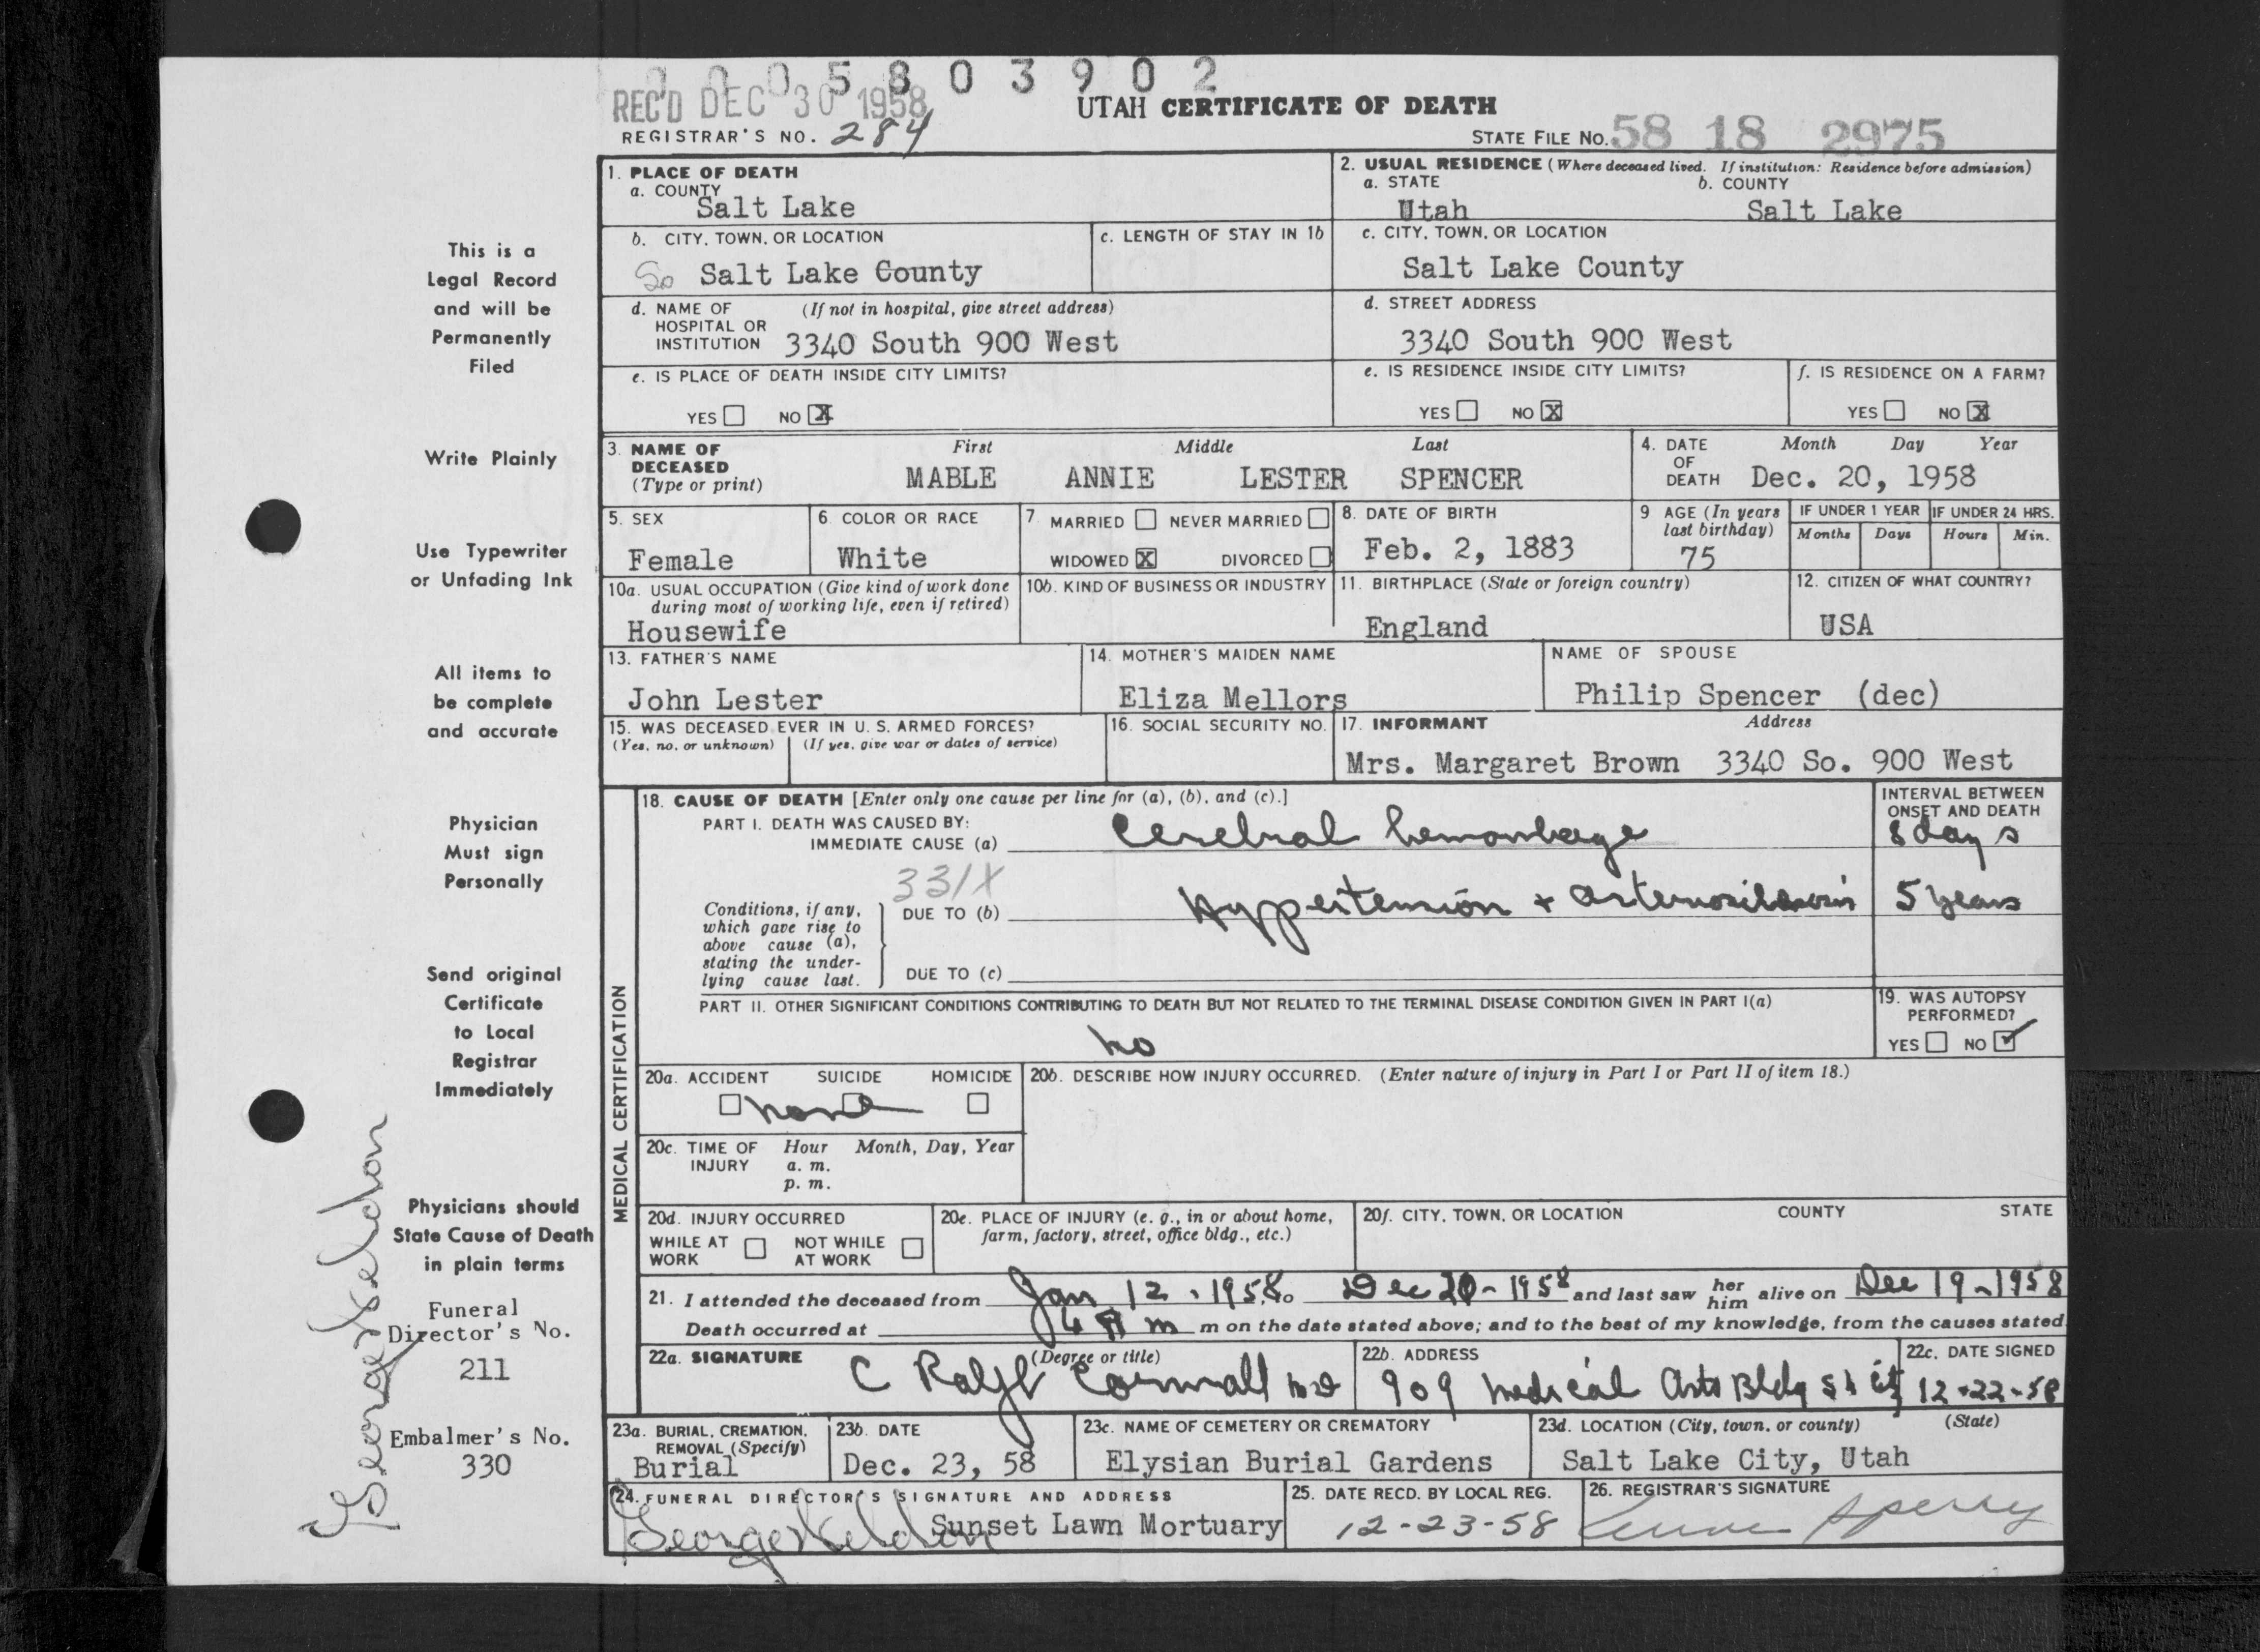 0 0 0 5 8 0 3 9 0 2
REC'D DEC 30 1958
UTAH CERTIFICATE OF DEATH
REGISTRAR'S NO. 284
STATE FILE NO. 58 18 2975
1. PLACE OF DEATH
a. COUNTY
Salt Lake
2. USUAL RESIDENCE (Where deceased lived. If institution: Residence before admission)
a. STATE b. COUNTY
Utah Salt Lake
b. CITY, TOWN, OR LOCATION
So Salt Lake County
c. LENGTH OF STAY IN 1b
c. CITY, TOWN, OR LOCATION
Salt Lake County
d. NAME OF HOSPITAL OR INSTITUTION (If not in hospital, give street address)
3340 South 900 West
d. STREET ADDRESS
3340 South 900 West
e. IS PLACE OF DEATH INSIDE CITY LIMITS?
YES NO X
e. IS RESIDENCE INSIDE CITY LIMITS?
YES NO X
f. IS RESIDENCE ON A FARM?
YES NO X
3. NAME OF DECEASED (Type or print)
First Middle Last
MABLE ANNIE LESTER SPENCER
4. DATE OF DEATH
Month Day Year
Dec. 20, 1958
5. SEX
Female
6. COLOR OR RACE
White
7. MARRIED NEVER MARRIED
WIDOWED X DIVORCED
8. DATE OF BIRTH
Feb. 2, 1883
9 AGE (In years last birthday)
75
IF UNDER 1 YEAR
Months Days
IF UNDER 24 HRS.
Hours Min.
10a. USUAL OCCUPATION (Give kind of work done during most of working life, even if retired)
Housewife
10b. KIND OF BUSINESS OR INDUSTRY
11. BIRTHPLACE (State or foreign country)
England
12. CITIZEN OF WHAT COUNTRY?
USA
13. FATHER'S NAME
John Lester
14. MOTHER'S MAIDEN NAME
Eliza Mellors
NAME OF SPOUSE
Philip Spencer (dec)
15. WAS DECEASED EVER IN U. S. ARMED FORCES?
(Yes, no, or unknown) (If yes, give war or dates of service)
16. SOCIAL SECURITY NO.
17. INFORMANT Address
Mrs. Margaret Brown 3340 So. 900 West
MEDICAL CERTIFICATION
18. CAUSE OF DEATH [Enter only one cause per line for (a), (b), and (c).]
INTERVAL BETWEEN ONSET AND DEATH
PART I. DEATH WAS CAUSED BY:
IMMEDIATE CAUSE (a) Cerebral hemorrhage 8 days
331X
Conditions, if any, which gave rise to above cause (a), stating the underlying cause last.
DUE TO (b) Hypertension + arteriosclerosis 5 years
DUE TO (c)
PART II. OTHER SIGNIFICANT CONDITIONS CONTRIBUTING TO DEATH BUT NOT RELATED TO THE TERMINAL DISEASE CONDITION GIVEN IN PART I(a)
no
19. WAS AUTOPSY PERFORMED?
YES NO ✓
20a. ACCIDENT SUICIDE HOMICIDE
none
20b. DESCRIBE HOW INJURY OCCURRED. (Enter nature of injury in Part I or Part II of item 18.)
20c. TIME OF INJURY
Hour Month, Day, Year
a. m.
p. m.
20d. INJURY OCCURRED
WHILE AT WORK NOT WHILE AT WORK
20e. PLACE OF INJURY (e. g., in or about home, farm, factory, street, office bldg., etc.)
20f. CITY, TOWN, OR LOCATION COUNTY STATE
21. I attended the deceased from Jan 12 - 1958, to Dec 20 - 1958 and last saw her him alive on Dec 19 - 1958
Death occurred at 4 m m on the date stated above; and to the best of my knowledge, from the causes stated
22a. SIGNATURE (Degree or title)
C Ralph Cornwall MD
22b. ADDRESS
909 Medical Arts Bldg S L City
22c. DATE SIGNED
12-22-58
23a. BURIAL, CREMATION, REMOVAL (Specify)
Burial
23b. DATE
Dec. 23, 58
23c. NAME OF CEMETERY OR CREMATORY
Elysian Burial Gardens
23d. LOCATION (City, town, or county) (State)
Salt Lake City, Utah
24. FUNERAL DIRECTOR'S SIGNATURE AND ADDRESS
Sunset Lawn Mortuary
25. DATE RECD. BY LOCAL REG.
12-23-58
26. REGISTRAR'S SIGNATURE
Sperry
This is a
Legal Record
and will be
Permanently
Filed
Write Plainly
Use Typewriter
or Unfading Ink
All items to
be complete
and accurate
Physician
Must sign
Personally
Send original
Certificate
to Local
Registrar
Immediately
Physicians should
State Cause of Death
in plain terms
Funeral
Director's No.
211
Embalmer's No.
330